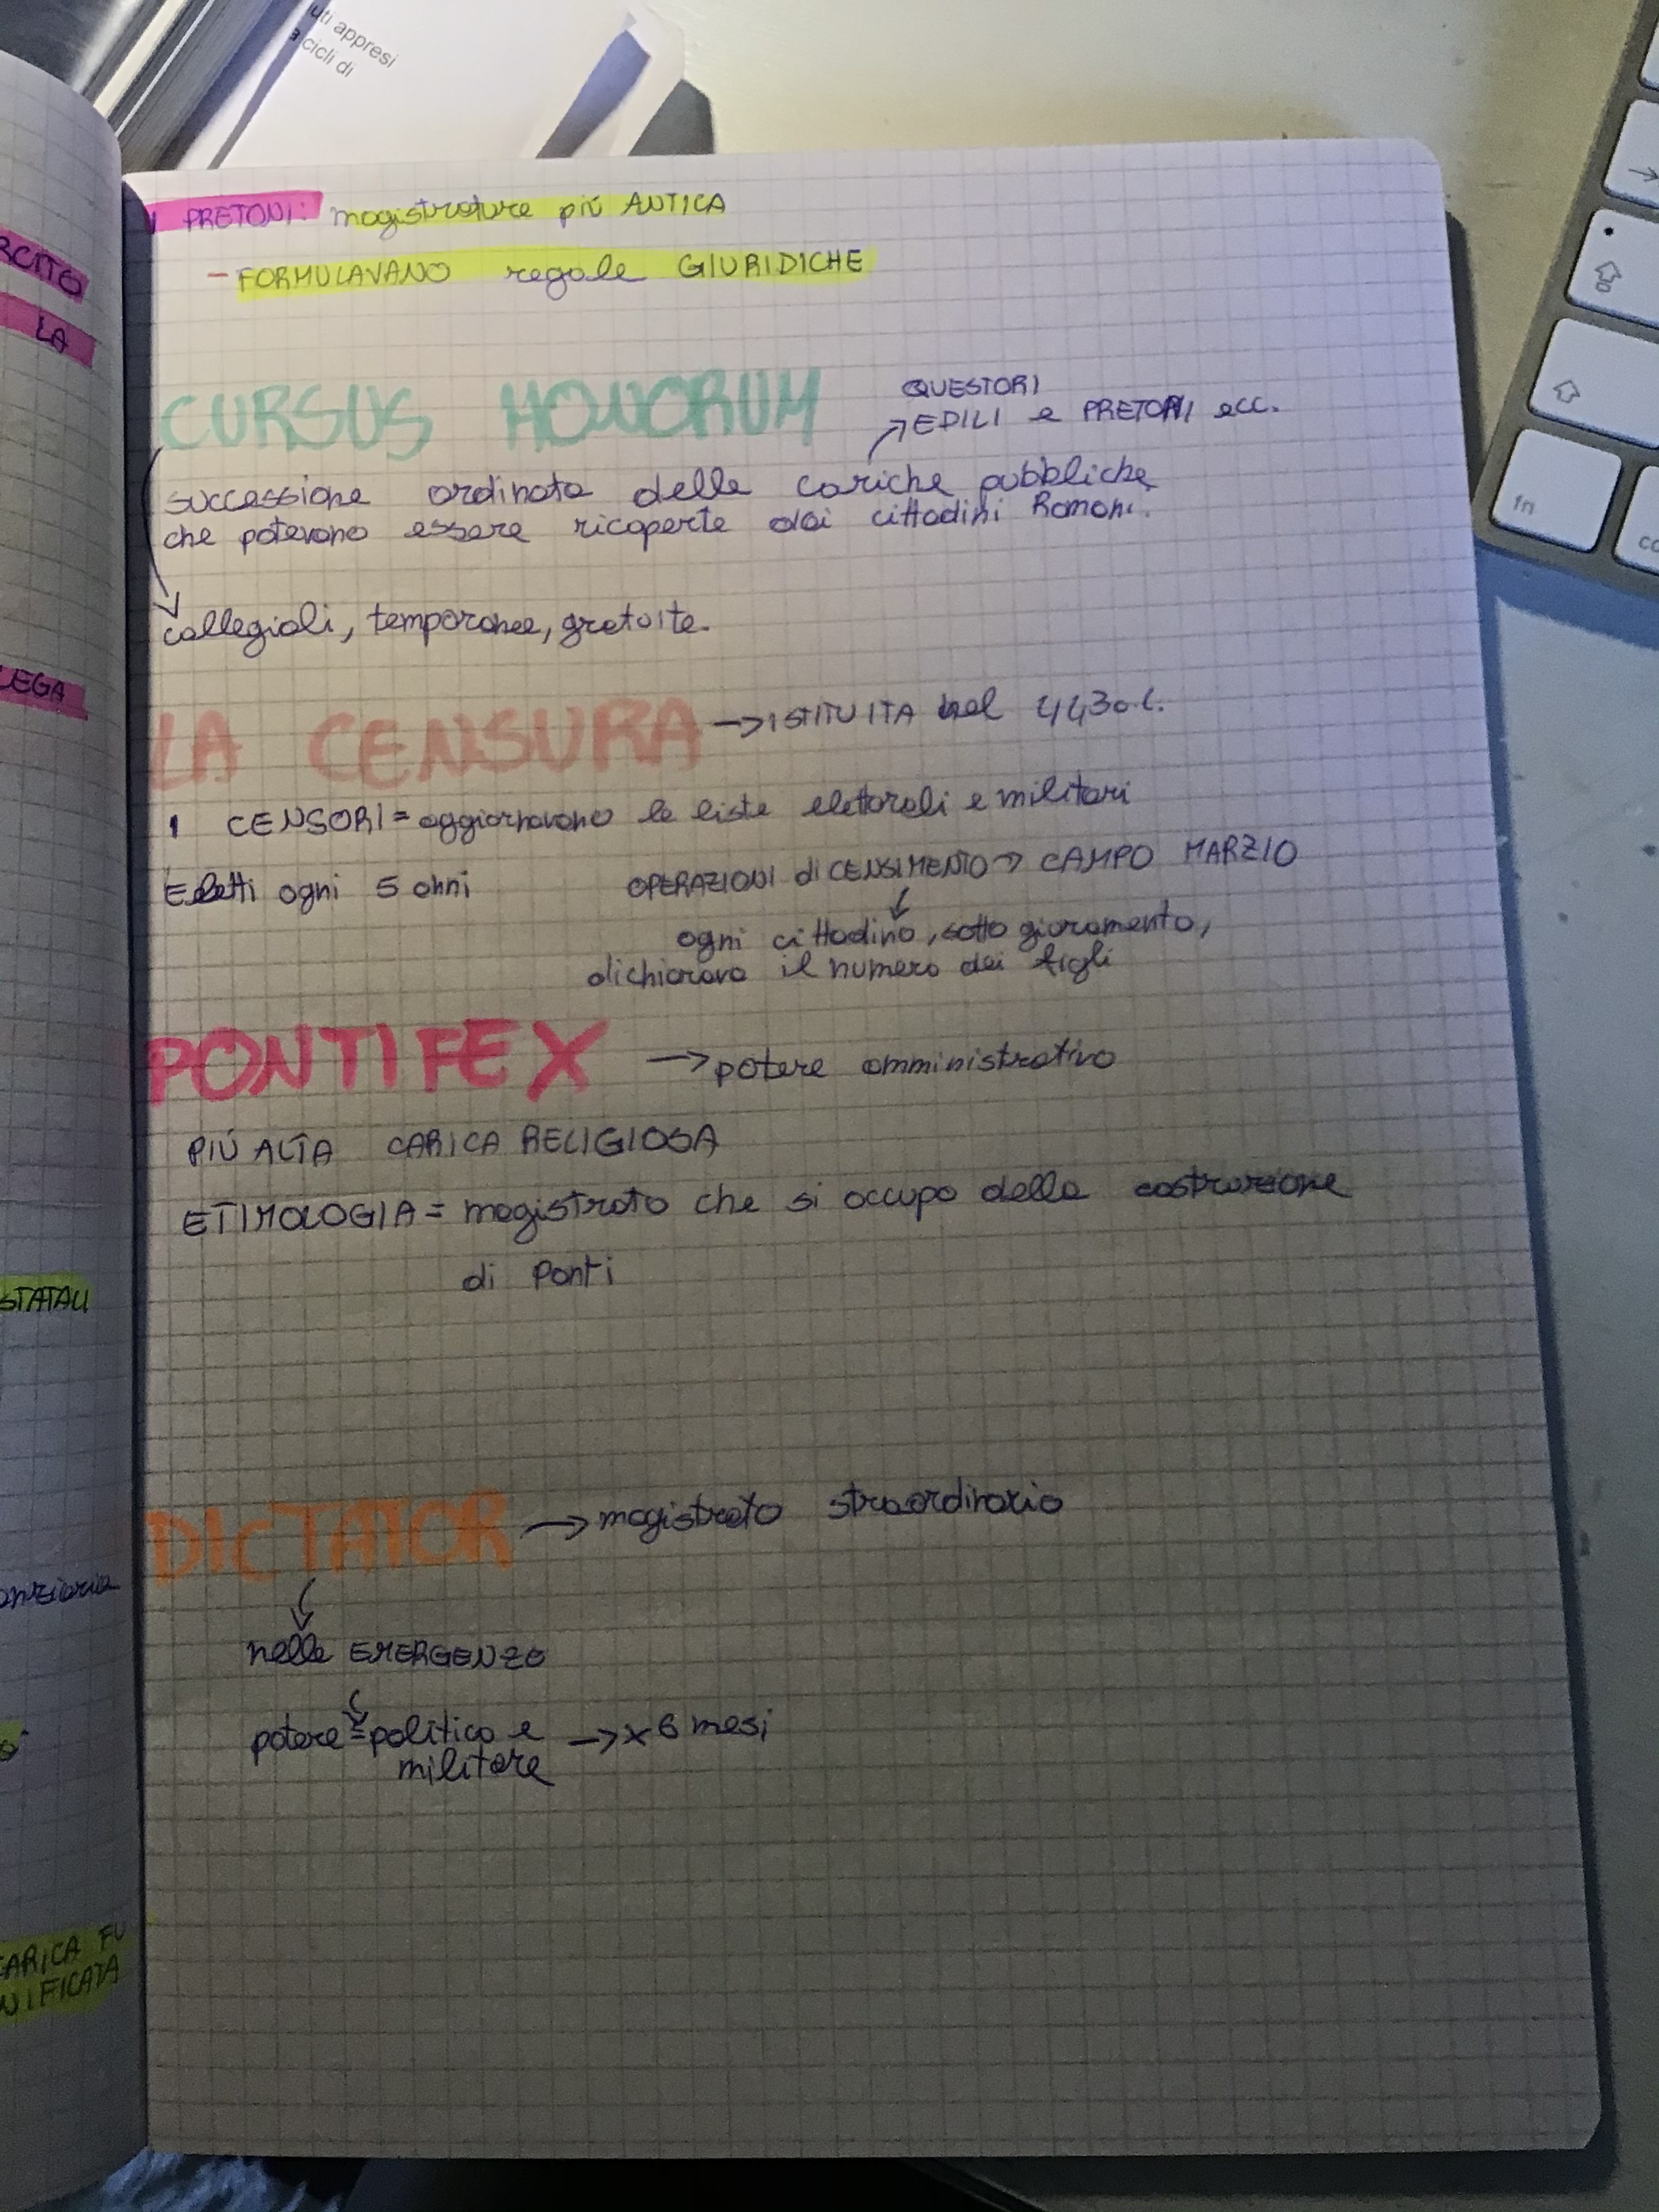 uti appresi
a cicli di
RCITO
LA
LEGA
STATALI
anziaria
CARICA FU
NIFICATA
I PRETORI: magistrature più ANTICA
- FORMULAVANO regole GIURIDICHE
CURSUS HONORUM
QUESTORI
EDILI e PRETORI ecc.
successione ordinata delle cariche pubbliche
che potevano essere ricoperte dai cittadini Romani.
collegiali, temporanee, gratuite.
LA CENSURA → ISTITUITA nel 443 a.C.
I CENSORI = aggiornavano le liste eletorali e militari
Eletti ogni 5 anni
OPERAZIONI di CENSIMENTO → CAMPO MARZIO
ogni cittadino, sotto giuramento,
dichiarava il numero dei figli
PONTIFEX → potere amministrativo
PIÚ ALTA CARICA RELIGIOSA
ETIMOLOGIA = magistrato che si occupa della costruzione
di Ponti
DICTATOR → magistrato straordinario
nelle EMERGENZE
potere = politico e → x 6 mesi
militare
fn